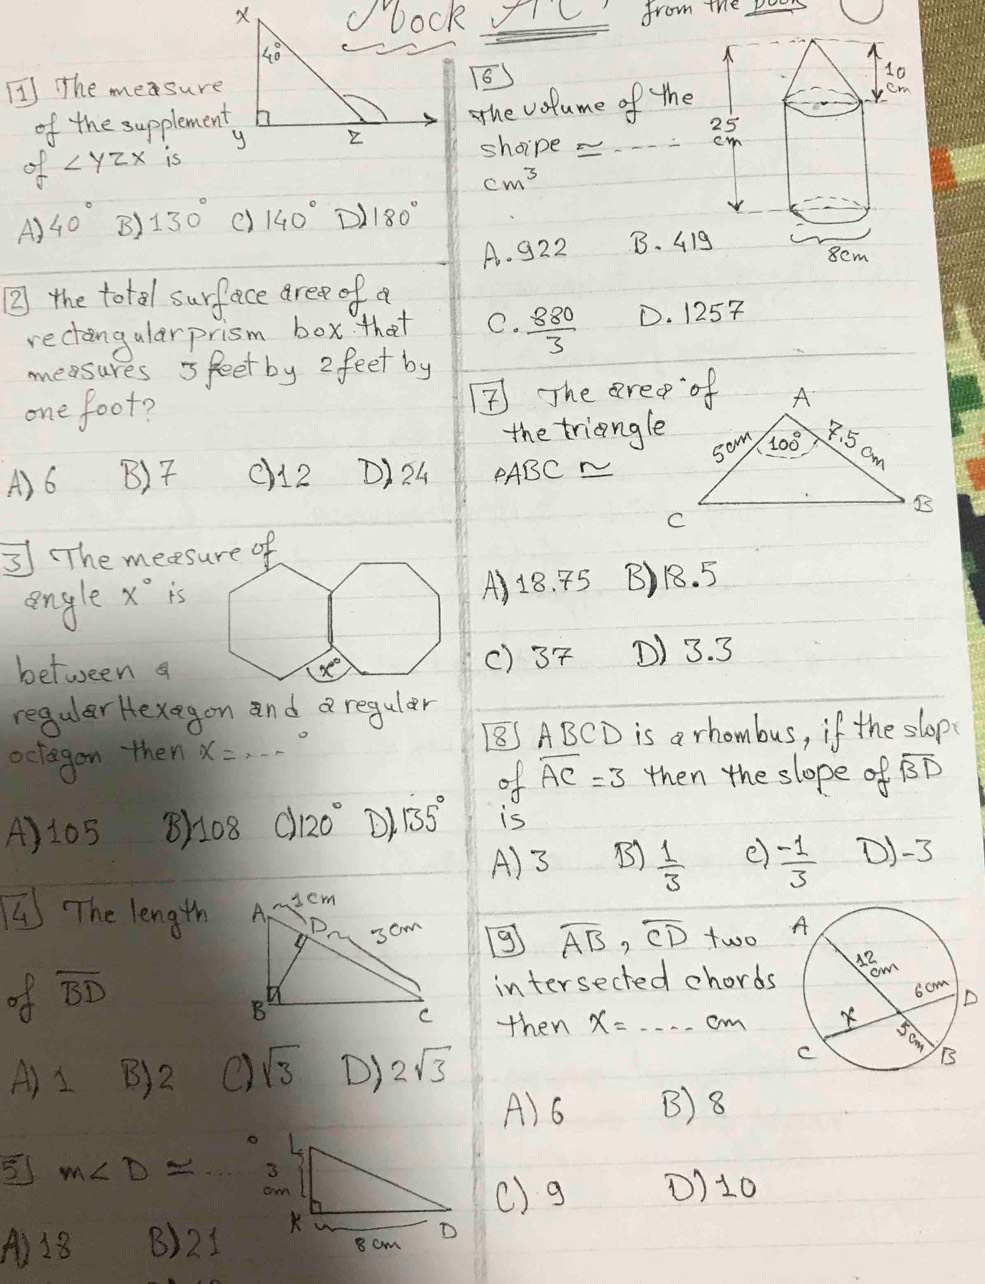 Mock
from the book
1 The measure
of the supplement
of ∠YZX is
X
40°
y
Z
A) 40° B) 130° C) 140° D) 180°
2 the total surface area of a
rectangular prism box that
measures 3 feet by 2 feet by
one foot?
A) 6 B) 7 C) 12 D) 24
3 The measure of
angle X° is
x°
between a
regular Hexagon and a regular
octagon then x = ....°
A) 105 B) 108 C) 120° D) 135°
4 The length
of BD
A 1cm
D 3cm
B
C
A) 1 B) 2 C) √3 D) 2√3
5 m∠D ≃ ....°
L
3
cm
K
8 cm
D
A) 18 B) 21
6
The volume of the
shape ≃ ....
cm³
10
cm
25
cm
8cm
A. 922 B. 419
C. 880/3 D. 1257
7 The area of
the triangle
△ABC ≃
A
5cm
100°
7.5 cm
C
B
A) 18.75 B) 18.5
C) 37 D) 3.3
8 ABCD is a rhombus, if the slope
of AC = 3 then the slope of BD
is
A) 3 B) 1/3 C) -1/3 D) -3
9 AB, CD two
intersected chords
then X = .... cm
A
12
cm
6cm
D
X
5cm
C
B
A) 6 B) 8
C) 9 D) 10